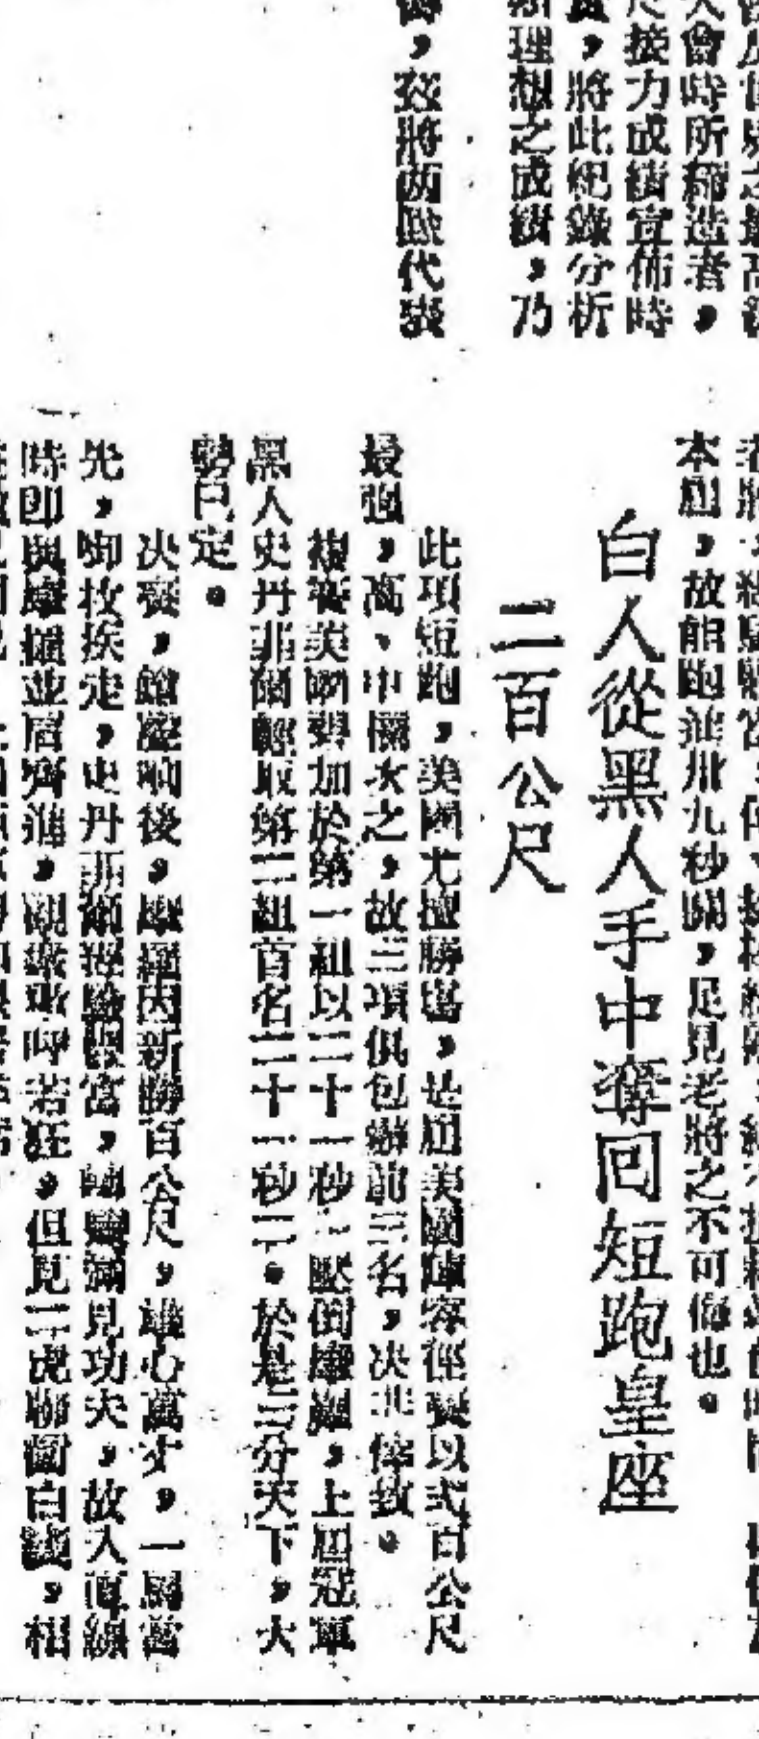 大會時所締造者，
尺接力成績宣佈時
，將此紀錄分析
理想之成績，乃
，茲將兩隊代表
本屆，故能跑進卅九秒關，足見老將之不可侮也。
白人從黑人手中奪回短跑皇座
二百公尺
此項短跑，美國尤擅勝場，是屆美國陣容徑賽以式百公尺
最强，高、中欄次之，故三項俱包辦前三名，决非倖致。
複賽美國畀加於第一組以二十一秒二壓倒摩羅，上屆冠軍
黑人史丹菲爾輕取第二組首名二十一秒二。於是三分天下，大
勢已定。
决賽，鎗聲响後，摩羅因新勝百公尺，雄心萬丈，一馬當
先，啣枚疾走，史丹菲爾經驗豐富，轉彎滿見功夫，故入直線
時即與摩羅並眉齊進，觀衆歡呼若狂，但見二虎聯衝白綫，相